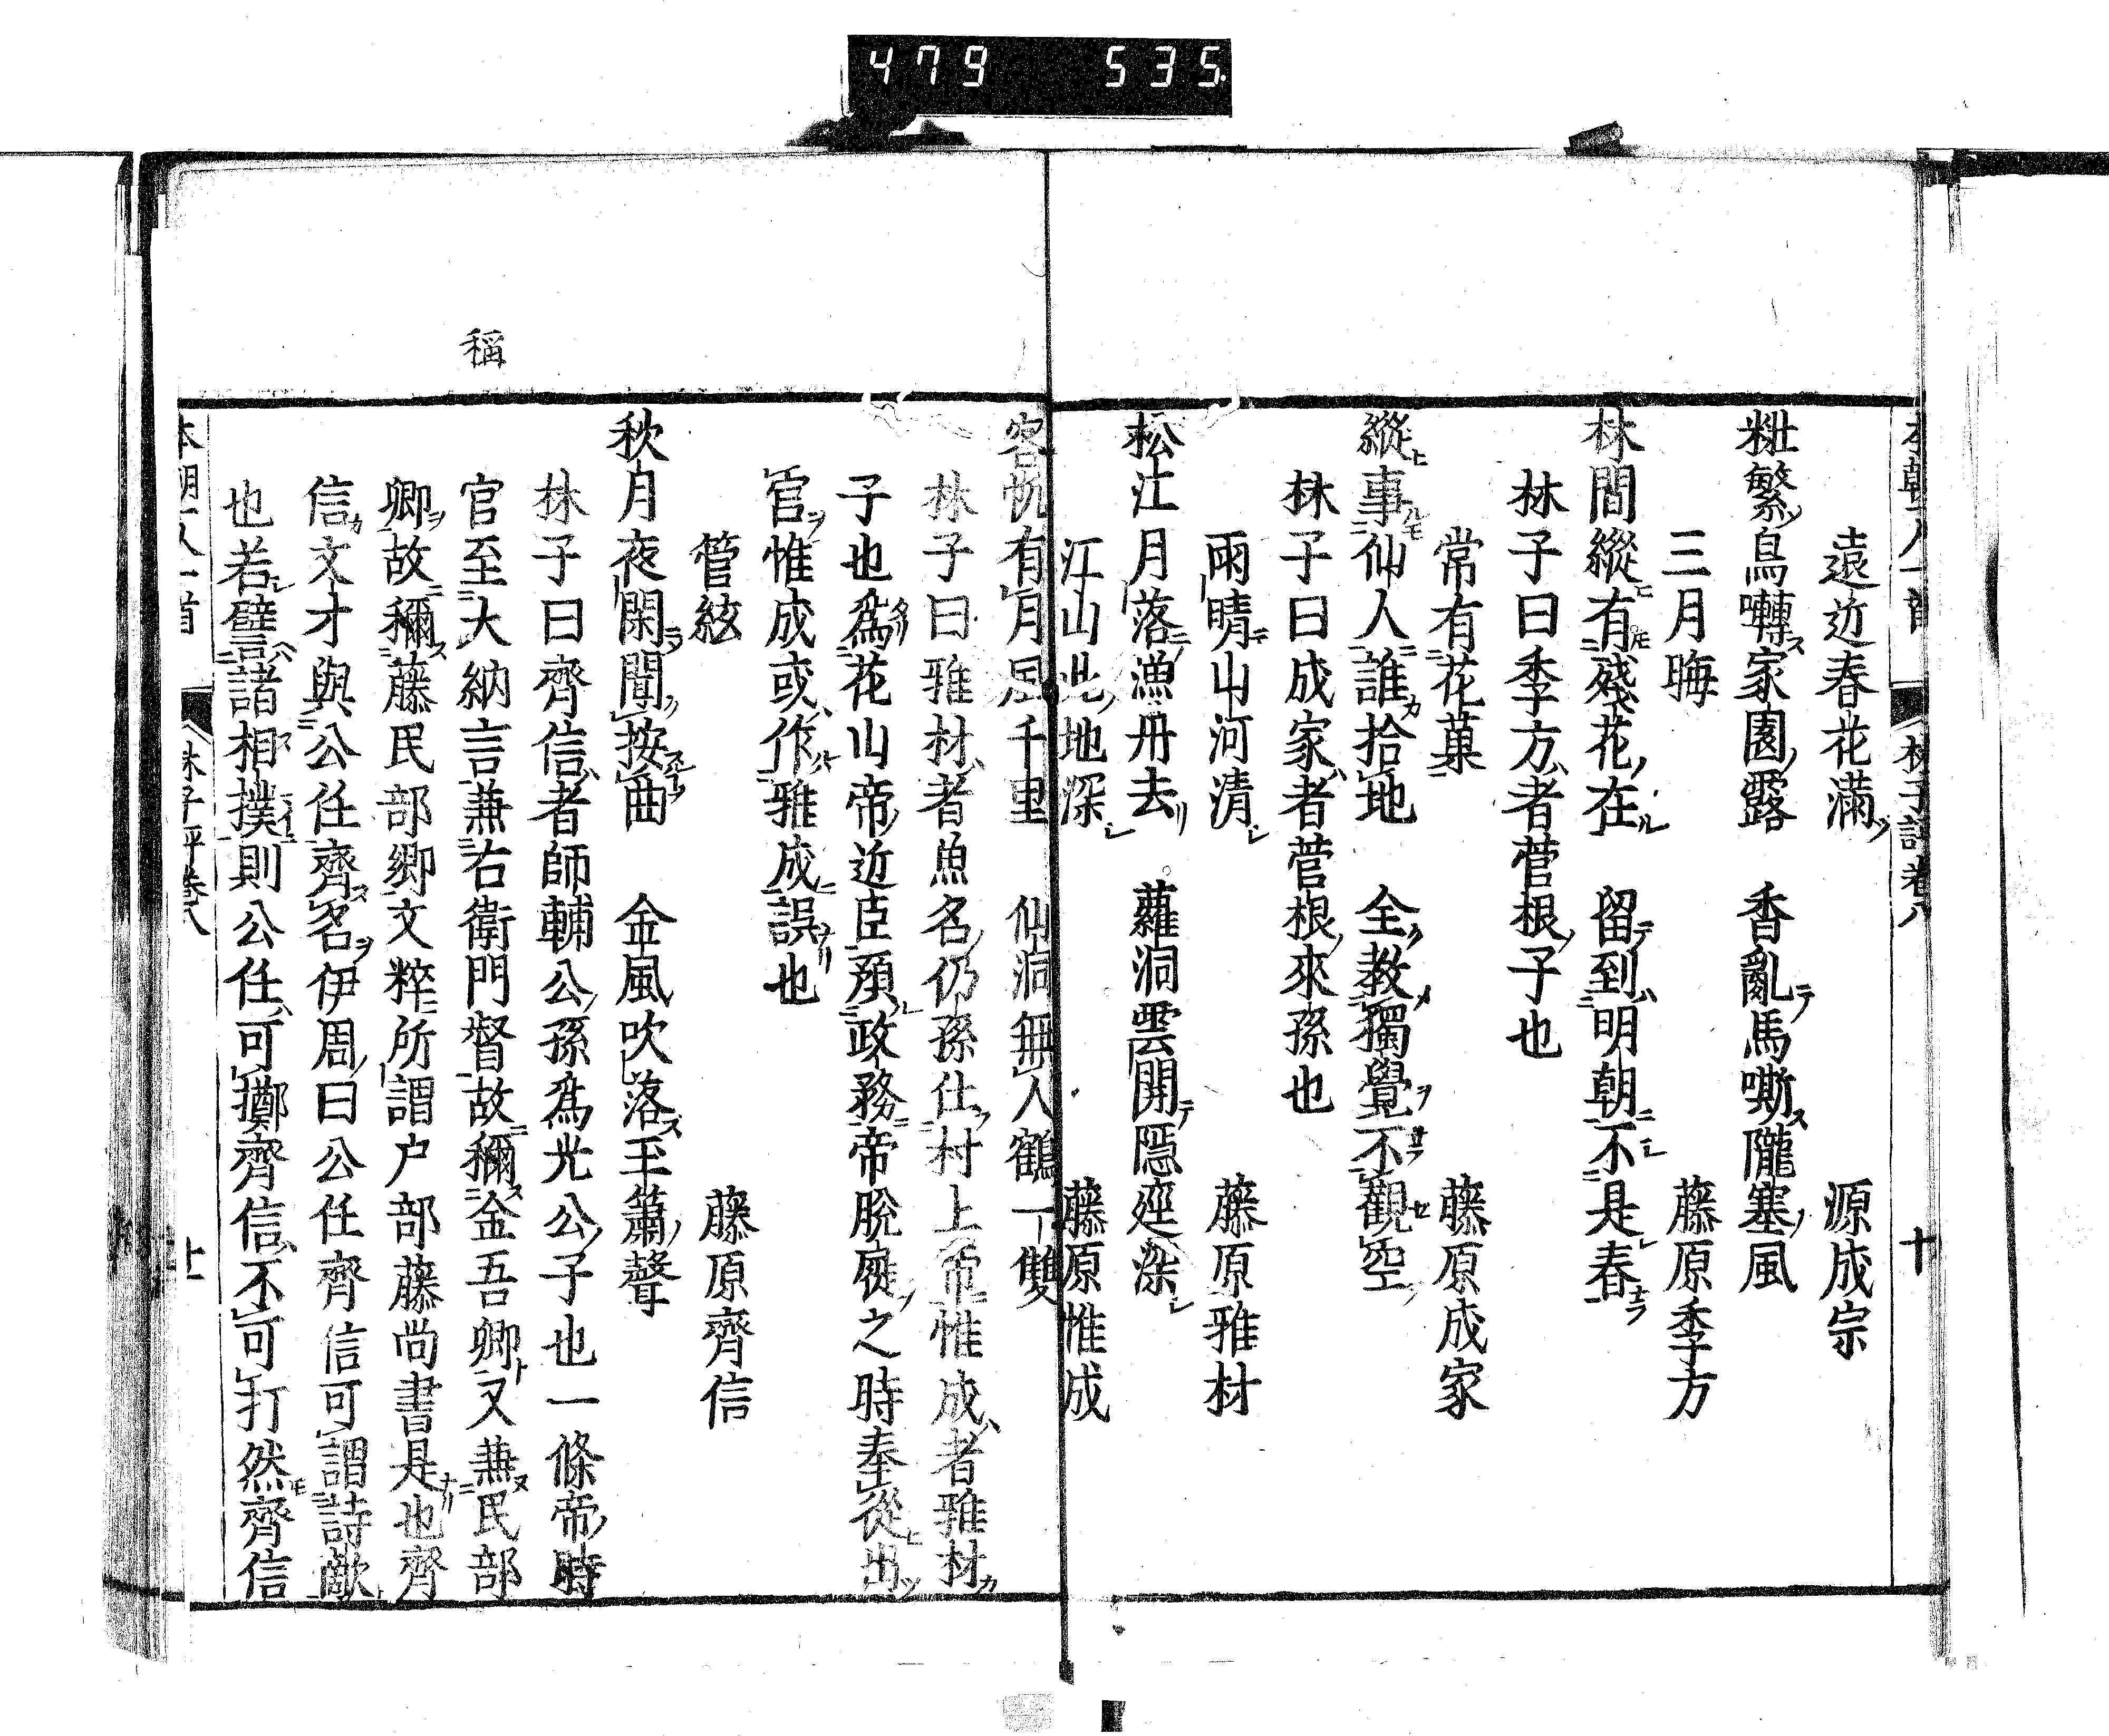 479 535
本朝一人一首 林子評卷八 十
遠近春花滿 源成宗
粧繁鳥囀家園露 香亂馬嘶隴塞風
三月晦 藤原季方
林間縱有殘花在 留到明朝不是春
林子曰季方者菅根子也
常有花菓 藤原成家
縱事仙人誰拾地 全教獨覺不觀空
林子曰成家者菅根來孫也
雨晴山河清 藤原雅材
松江月落漁舟去 蘿洞雲開隱逕深
江山此地深 藤原惟成
客帆有月風千里 仙洞無人鶴一雙
林子曰雅材者魚名仍孫仕村上帝惟成者雅材
子也爲花山帝近臣預政務帝脫屣之時奉從出
官惟成或作雅成誤也
管絃 藤原齊信
秋月夜閑聞按曲 金風吹落玉簫聲
林子曰齊信者師輔公孫爲光公子也一條帝時
官至大納言兼右衛門督故稱金吾卿又兼民部
卿故稱藤民部卿文粹所謂户部藤尚書是也齊
信文才與公任齊名伊周曰公任齊信可謂詩敵
也若譬諸相撲則公任可擲齊信不可打然齊信
稱
本朝一人一首 林子評卷八 十一